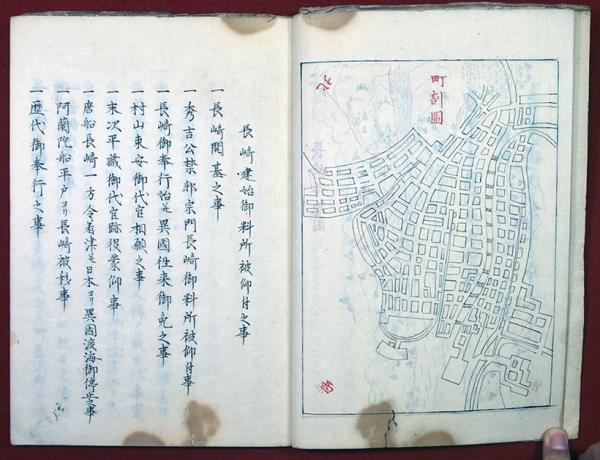 町割圖
北
西
長崎建始御料所被仰付之事
一長崎開基之事
一秀吉公禁邪宗門長崎御料所被仰付事
一長崎御奉行始并異國往来御免之事
一村山東安御代官相願之事
一末次平藏御代官跡役蒙仰事
一唐船長崎一方令着津并日本ヨリ異國渡海御停止之事
一阿蘭陀船平戸ヨリ長崎被移事
一歴代御奉行之事